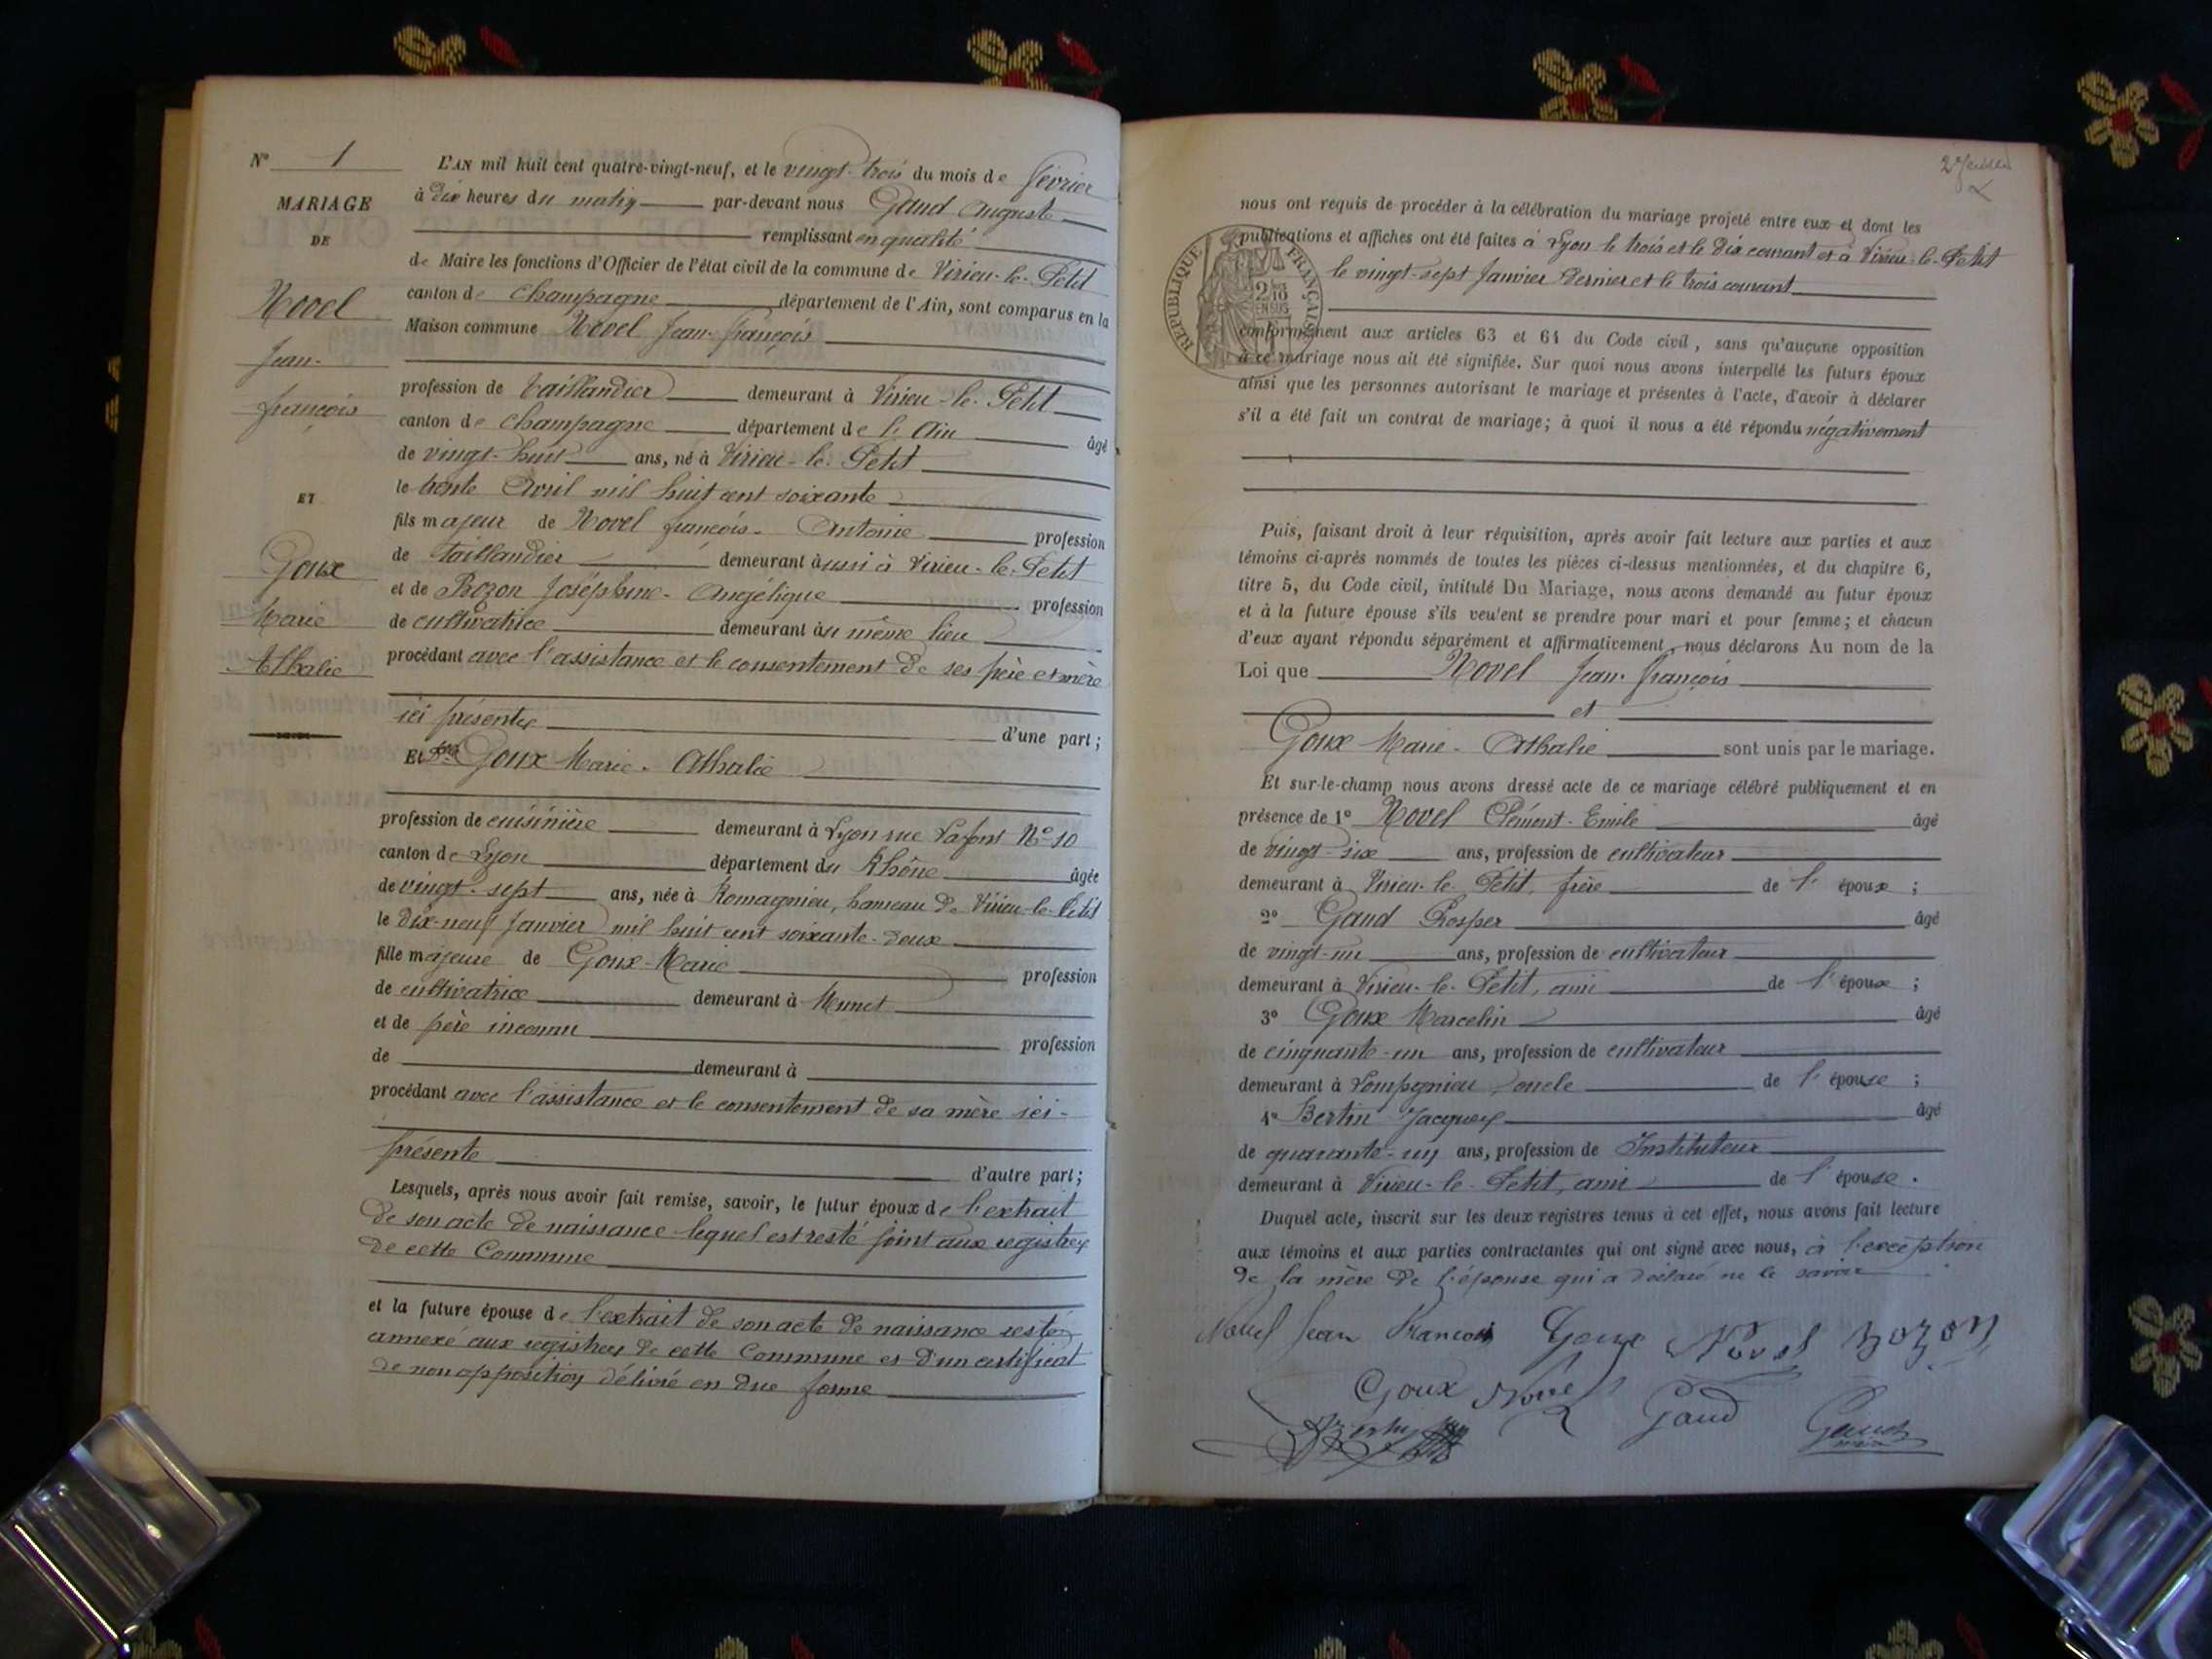 N° 1
MARIAGE
DE
Novel
Jean-
françois
ET
Goux
Marie
Athalie
L'AN mil huit cent quatre-vingt-neuf, et le vingt-trois du mois de février
à dix heures du matin par-devant nous Gaud Auguste
remplissant en qualité
de Maire les fonctions d'Officier de l'état civil de la commune de Virieu-le-Petit
canton de Champagne département de l'Ain, sont comparus en la
Maison commune Novel Jean-françois
profession de taillandier demeurant à Virieu-le-Petit
canton de Champagne département de l'Ain âgé
de vingt-huit ans, né à Virieu-le-Petit
le trente Avril mil huit cent soixante
fils majeur de Novel françois-Antoine profession
de taillandier demeurant aussi à Virieu-le-Petit
et de Bozon Joséphine-Angélique profession
de cultivatrice demeurant au même lieu
procédant avec l'assistance et le consentement de ses père et mère
ici présents d'une part;
Et Dlle Goux Marie-Athalie
profession de cuisinière demeurant à Lyon rue Lafont N° 10
canton de Lyon département du Rhône âgée
de vingt-sept ans, née à Romagnieu, hameau de Virieu-le-Petit
le dix-neuf Janvier mil huit cent soixante-deux
fille majeure de Goux-Marie profession
de cultivatrice demeurant à Munet
et de père inconnu profession
de demeurant à
procédant avec l'assistance et le consentement de sa mère ici-
présente d'autre part;
Lesquels, après nous avoir fait remise, savoir, le futur époux de l'extrait
de son acte de naissance lequel est resté joint aux registres
de cette Commune
et la future épouse de l'extrait de son acte de naissance resté
annexé aux registres de cette Commune et d'un certificat
de non opposition délivré en due forme
2 feuillet
nous ont requis de procéder à la célébration du mariage projeté entre eux et dont les
publications et affiches ont été faites à Lyon le trois et le dix courant et à Virieu-le-Petit
le vingt-sept Janvier dernier et le trois courant
RÉPUBLIQUE FRANÇAISE
2/10
EN SUS
conformément aux articles 63 et 64 du Code civil, sans qu'aucune opposition
à ce mariage nous ait été signifiée. Sur quoi nous avons interpellé les futurs époux
ainsi que les personnes autorisant le mariage et présentes à l'acte, d'avoir à déclarer
s'il a été fait un contrat de mariage; à quoi il nous a été répondu négativement
Puis, faisant droit à leur réquisition, après avoir fait lecture aux parties et aux
témoins ci-après nommés de toutes les pièces ci-dessus mentionnées, et du chapitre 6,
titre 5, du Code civil, intitulé Du Mariage, nous avons demandé au futur époux
et à la future épouse s'ils veulent se prendre pour mari et pour femme; et chacun
d'eux ayant répondu séparément et affirmativement, nous déclarons Au nom de la
Loi que Novel Jean-françois
et
Goux Marie-Athalie sont unis par le mariage.
Et sur-le-champ nous avons dressé acte de ce mariage célébré publiquement et en
présence de 1° Novel Clément-Emile âgé
de vingt-six ans, profession de cultivateur
demeurant à Virieu-le-Petit, frère de l'époux;
2° Gaud Prosper âgé
de vingt-un ans, profession de cultivateur
demeurant à Virieu-le-Petit, ami de l'époux;
3° Goux Marcelin âgé
de cinquante-un ans, profession de cultivateur
demeurant à Lompgnieu, oncle de l'épouse;
4° Bertin Jacques âgé
de quarante-un ans, profession de Instituteur
demeurant à Virieu-le-Petit, ami de l'épouse.
Duquel acte, inscrit sur les deux registres tenus à cet effet, nous avons fait lecture
aux témoins et aux parties contractantes qui ont signé avec nous, à l'exception
de la mère de l'épouse qui a déclaré ne le savoir
Novel Jean François Goux Novel Bozon
Goux Novel Gaud Gaud
Bertin